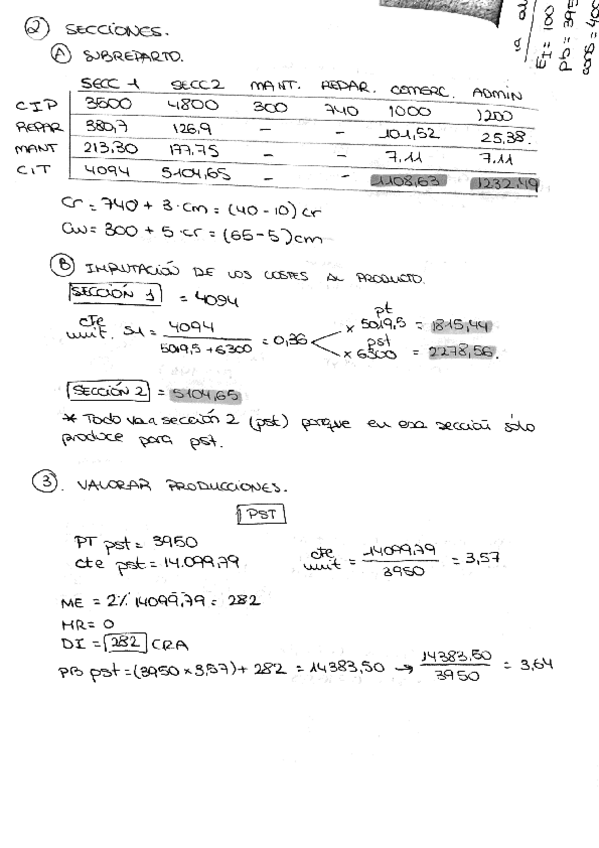 ② SECCIONES.
Ⓐ SUBREPARTO.
SECC 1 SECC 2 MANT. REPAR. COMERC. ADMIN
CIP 3500 4800 300 740 1000 1200
REPAR 380,7 126,9 - - 101,52 25,38.
MANT 213,30 177,75 - - 7,11 7,11
CIT 4094 5104,65 - - 1108,63 1232,49
Cr = 740 + 3·cm = (40-10)cr
Cm = 300 + 5·cr = (65-5)cm
Ⓑ IMPUTACIÓN DE LOS COSTES AL PRODUCTO.
SECCIÓN 1 = 4094
cte unit. S1 = 4094 / 5019,5 + 6300 = 0,36
pt
× 5019,5 = 1815,44
pst
× 6300 = 2278,56.
SECCIÓN 2 = 5104,65
* Todo va a sección 2 (pst) porque en esa sección sólo
produce para pst.
③. VALORAR PRODUCCIONES.
PST
PT pst = 3950
cte pst = 14.099,79
cte unit = 14099,79 / 3950 = 3,57
ME = 2% 14099,79 = 282
MR = 0
DI = 282 CRA
PB pst = (3950 × 3,57) + 282 = 14383,50 → 14383,50 / 3950 = 3,64
EI = 100
Pb = 395
cons = 400